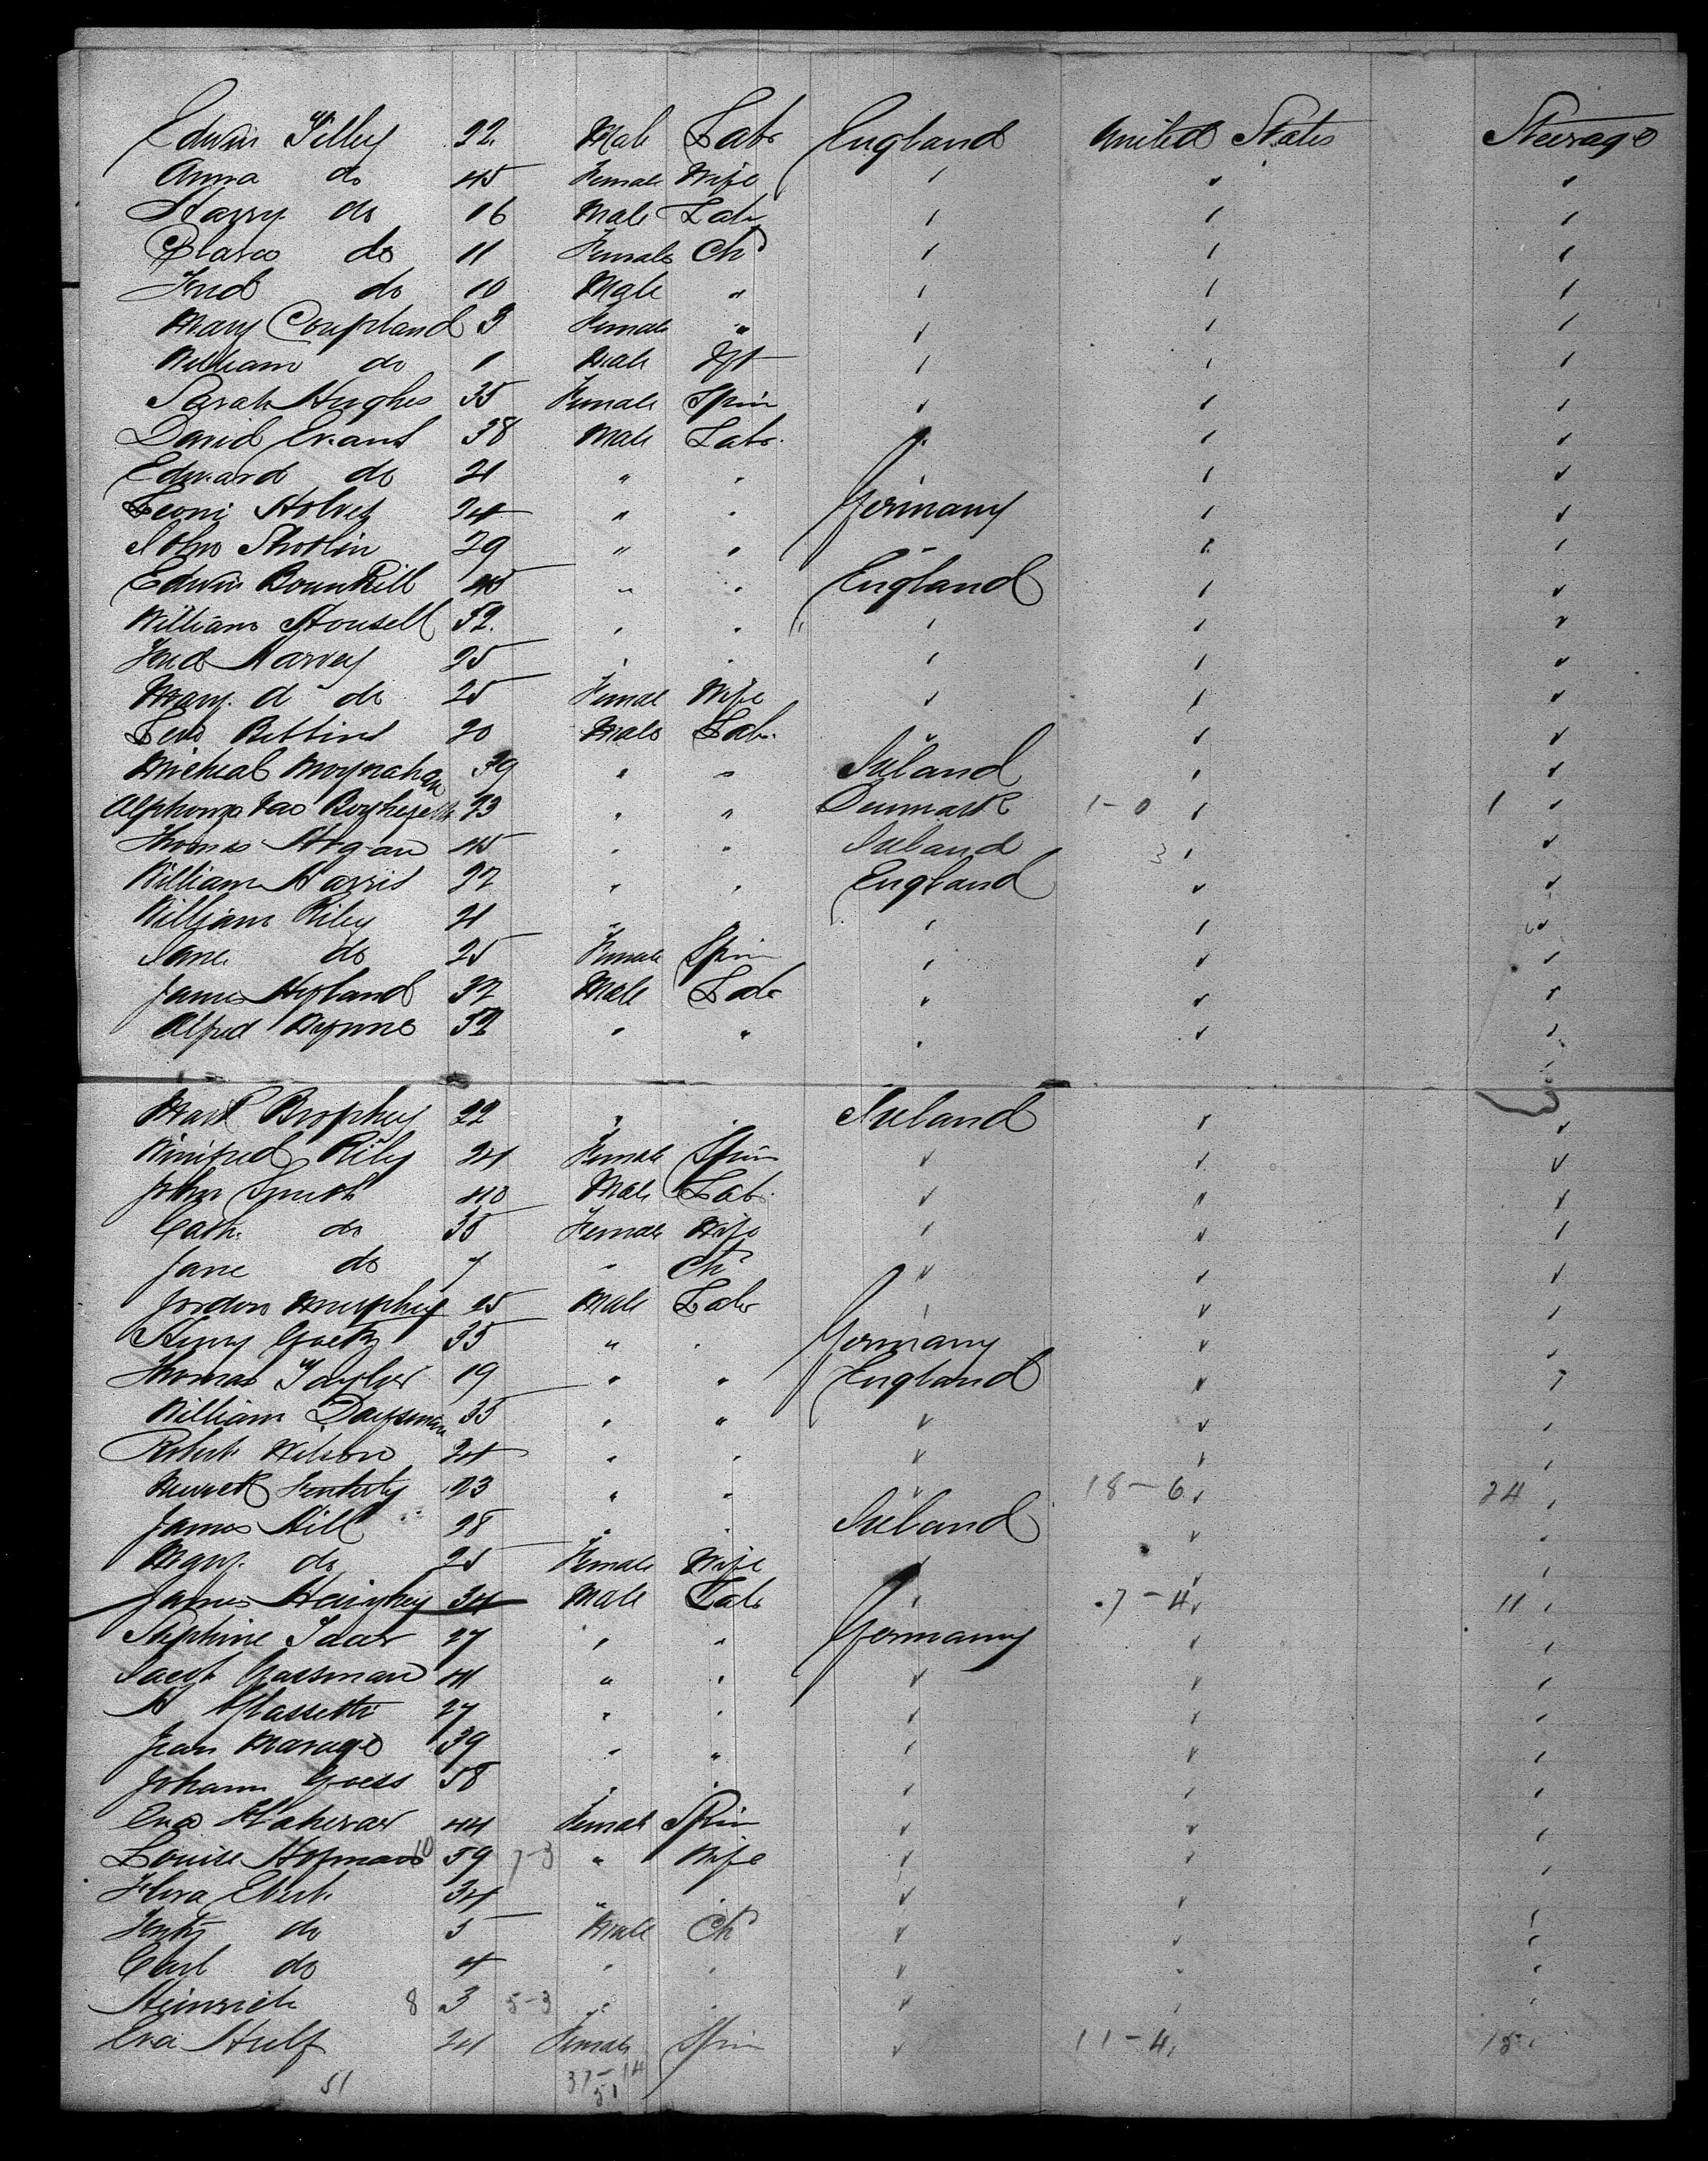 Edwin Tilley 22 Male Labr England United States Steerage
Anna do 45 Female Wife
Harry do 16 Male Labr
Clara do 11 Female Chd
Fred do 10 Male "
Mary Coupland 3 Female "
William do 1 Male Inft
Sarah Hughes 35 Female Spin
David Evans 38 Male Labr
Edward do 21 " "
Leoni 24 " " Germany
John 29 " " "
Edwin 45 " " England
William Housell 52 " "
Fred Harvey 25 " "
Mary A do 25 Female Wife
Levi Bettins 20 Male Labr "
Micheal Moynahan 39 " " Ireland
23 " " Denmark 1-0 1
Thomas Hogan 45 " " Ireland 3
William Harris 27 " " England
William Riley 21 "
Jane do 25 Female Spin
James Hyland 37 Male Labr
Alfred Wynne 52 " "
Mark Brophy 22 " " Ireland
Winifred Riley 24 Female Spin
John Smith 40 Male Labr
Cath. do 35 Female Wife
Jane do 7 " Chd
Jordon Murphy 25 Male Labr
Henry Goetz 35 " " Germany
Thomas Taylor 19 " " England
William Daysman 35 " "
Robert Wilson 24 " "
23 " " " 18-6 24
James Hill 28 " " Ireland
Mary do 25 Female Wife
James Haughey 34 Male Labr 7-4 11
Stephine Saar 27 " " Germany
Jacob Gassman 41 " "
A Glassetti 27 " "
Jean Marage 39 " "
Johann Goess 58 " "
Eva 44 Female Spin
Louise Hofman 10 59 7-3 " Wife
Flora Ebert 34 " "
Fritz do 5 Male Chd
Carl do 4 " "
Heinrich 8 3 5-3 " "
Eva Hulf 24 Female Spin 11-4 15
51 37-14
51